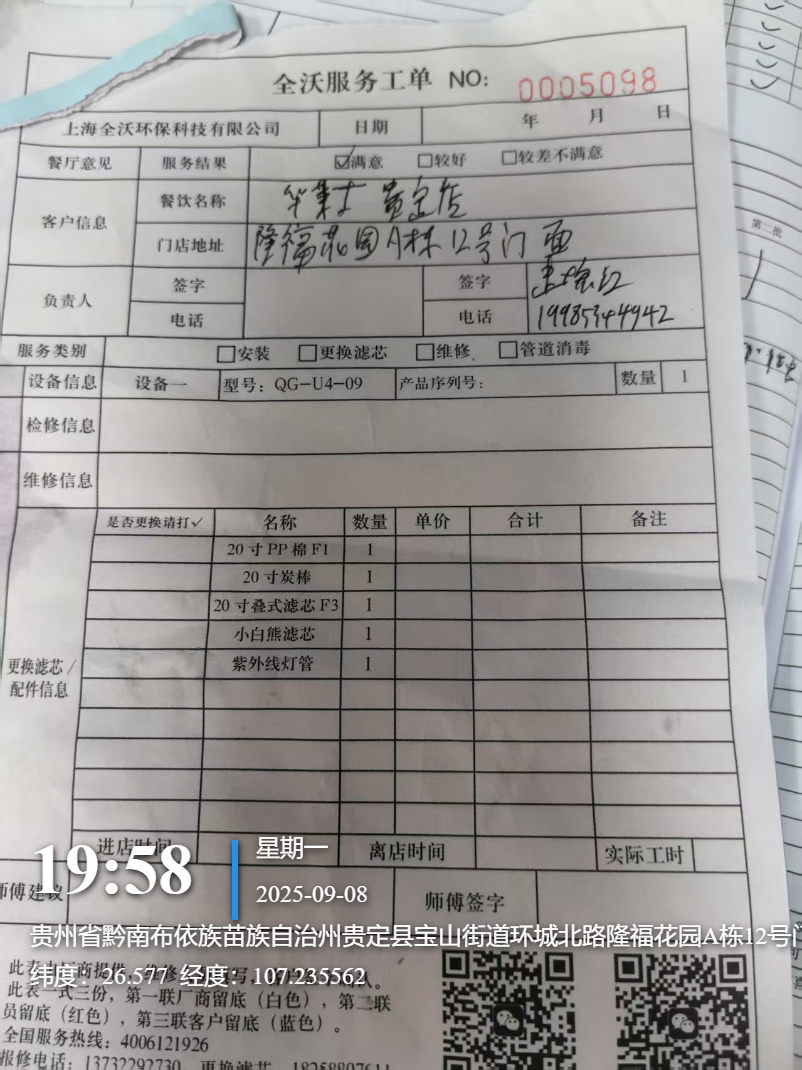 全沃服务工单 NO: 0005098
上海全沃环保科技有限公司 日期 年 月 日
餐厅意见 服务结果 ☑满意 □较好 □较差不满意
客户信息 餐饮名称 华莱士 贵定店
门店地址 隆福花园A栋12号门面
负责人 签字 签字
电话 电话 19985344942
服务类别 □安装 □更换滤芯 □维修 □管道消毒
设备信息 设备一 型号：QG-U4-09 产品序列号： 数量 1
检修信息
维修信息
是否更换请打✓ 名称 数量 单价 合计 备注
20寸PP棉F1 1
20寸炭棒 1
20寸叠式滤芯F3 1
小白熊滤芯 1
紫外线灯管 1
更换滤芯/
配件信息
进店时间 离店时间 实际工时
19:58
星期一
2025-09-08
师傅建议 师傅签字
贵州省黔南布依族苗族自治州贵定县宝山街道环城北路隆福花园A栋12号门
纬度：26.577 经度：107.235562
此表一式三份，第一联厂商留底（白色），第二联
员留底（红色），第三联客户留底（蓝色）。
全国服务热线：4006121926
报修电话：13732292730 更换滤芯
第二批